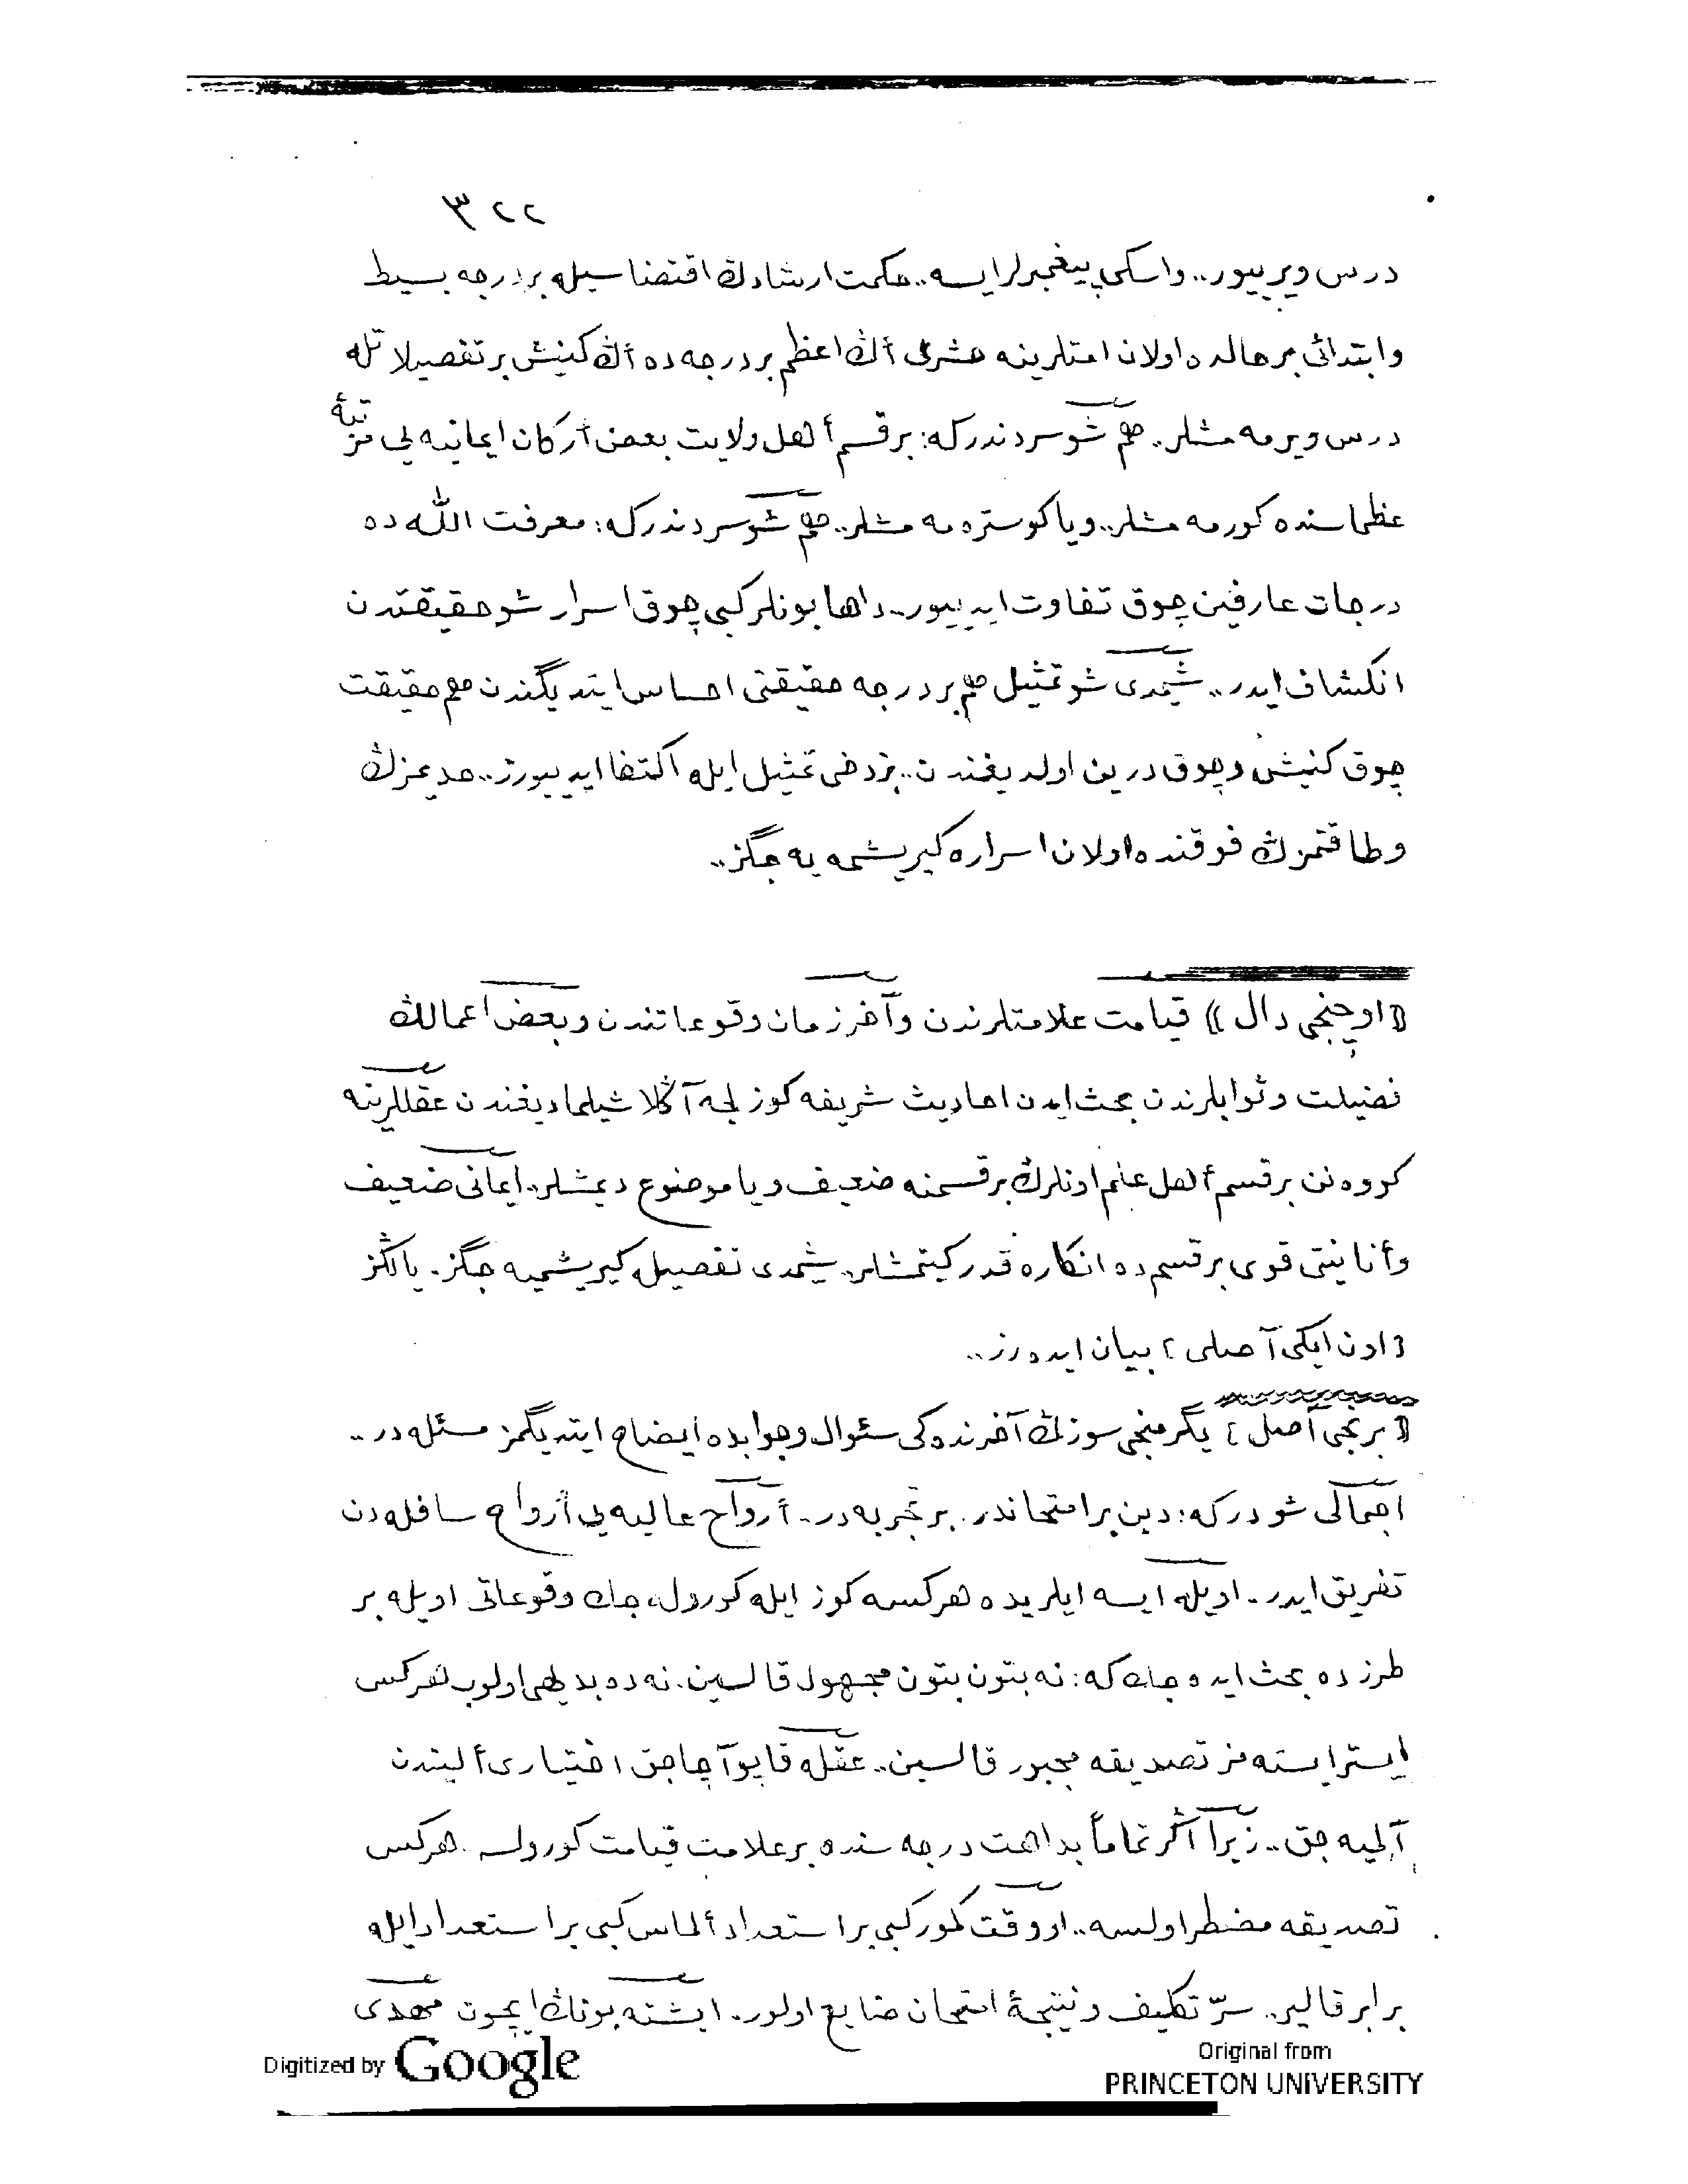 ٣٢٢
درس ویریيور.. واسکی پیغمبرلر ایسه.. حکمت ارشادڭ اقتضاسیله بر درجه بسیط
وابتدائی بر حالده اولان امتلرینه حشری أڭ اعظم بر درجه ده أڭ کنیش بر تفصیلاتله
درس ویرمه مشلر.. هم شو سردندرکه: بر قسم أهل ولایت بعض أرکان ایمانیه یی مرتبۀ
عظماسنده کورمه مشلر.. ویا کوستره مه مشلر.. هم شو سردندرکه: معرفت اللّٰه ده
درجات عارفین چوق تفاوت ایدییور.. داها بونلر کبی چوق اسرار شو حقیقتدن
انکشاف ایدر.. شیمدی شو تمثیل هم بر درجه حقیقتی احساس ایتدیگندن هم حقیقت
چوق کنیش وچوق درین اولدیغندن.. بز دخی تمثیل ایله اکتفا ایدییورز.. حدیمزڭ
وطاقتمزڭ فوقنده اولان اسراره کیریشمه یه جگز..
((اوچنجی دال)) قیامت علامتلرندن وآخر زمان وقوعاتندن وبعض اعمالڭ
فضیلت وثوابلرندن بحث ایدن احادیث شریفه کوزلجه آڭلاشیلمادیغندن عقللرینه
کووه نن بر قسم أهل علم اونلرڭ بر قسمنه ضعیف ویا موضوع دیمشلر.. ایمانی ضعیف
وأنانیتی قوی بر قسم ده انکاره قدر کیتمشلر.. شیمدی تفصیله کیریشمیه جگز. یالڭز
[اون ایکی آصلی] بیان ایده رز..
[برنجی آصل] یگرمنجی سوزڭ آخرنده کی سئوال وجوابده ایضاح ایتدیگمز مسئله در..
اجمالی شودرکه: دین بر امتحاندر. بر تجربه در. أرواح عالیه یی أرواح سافله دن
تفریق ایدر. اویله ایسه ایلریده هرکسه کوز ایله کوروله جك وقوعاتی اویله بر
طرزده بحث ایده جك که: نه بتون بتون مجهول قالسین. نه ده بدیهی اولوب هرکس
ایستر ایسته مز تصدیقه مجبور قالسین.. عقله قاپو آچاجق اختیاری ألیندن
آلمیه جق.. زیرا اگر تماماً بداهت درجه سنده بر علامت قیامت کورولسه. هرکس
تصدیقه مضطر اولسه.. او وقت کمور کبی بر استعداد ألماس کبی بر استعداد ایله
برابر قالیر.. سرّ تکلیف ونتیجۀ امتحان ضایع اولور. ایشته بونڭ ایچون مهدی
Digitized by Google
Original from
PRINCETON UNIVERSITY